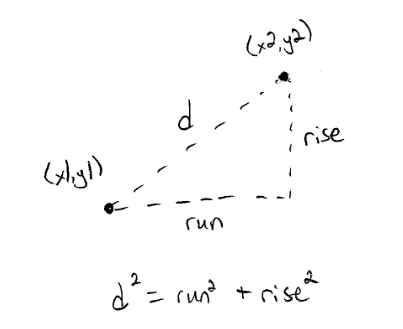 (x2,y2)
d
rise
(x1,y1)
run
d² = run² + rise²